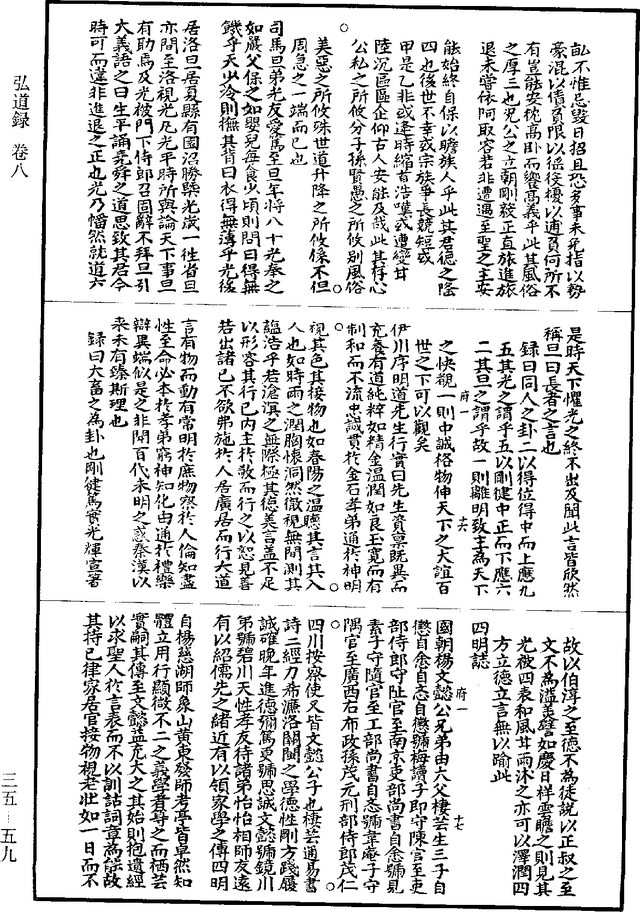 弘道録 卷八
亂不惟忌毀日招且恐多事未免指以勢
豪混以積負限以徭役擾以逋負何所不
有豈能安枕高卧而饗高義乎此其風俗
之厚三也況公之立朝剛毅正直旅進旅
退未嘗依阿取容若非遭逼至聖之主安
能始終自保以贍族人乎此其君德之隆
四也後世不幸或宗族爭長競短或
甲是乙非或逢時縮省浩嘆或遭變甘
陸沉區區企仰古人安能及哉此其存心
公私之所攸分子孫賢愚之所攸別風俗
美惡之所攸殊世道升降之所攸係不但
周急之一端而已也
司馬旦弟光友愛篤至旦年將八十光奉之
如嚴父保之如嬰兒每食少頃則問曰得無
饑乎天少冷則撫其背曰衣得無薄乎光後
居洛旦居夏縣有園沼勝槩光歲一往省旦
亦間至洛視光凡光平時所與論天下事旦
有助焉及光被門下侍郎召固辭不拜旦引
大義語之曰生平誦堯舜之道思致其君今
時可而違非進退之正也光乃幡然就道六
是時天下懼光之終不出及聞此言皆欣然
稱旦曰長者之言也
錄曰同人之卦二以得位得中而上應九
五其光之謂乎五以剛健中正而下應六
二其旦之謂乎故一則離明致主為天下
府一 十六
之快觀一則中誠格物伸天下之大誼百
世之下可以觀矣
伊川序明道先生行實曰先生資稟既異而
充養有道純粹如精金温潤如良玉寬而有
制和而不流忠誠貫於金石孝弟通於神明
視其色其接物也如春陽之温聽其言其入
人也如時雨之潤胸懷洞然徹視無間測其
蘊浩乎若滄溟之無際極其德美言蓋不足
以形容其行已內主於敬而行之以恕見善
若出諸已不欲弗施於人居廣居而行大道
言有物而動有常明於庶物察於人倫知盡
性至命必本於孝弟窮神知化由通於禮樂
辯異端似是之非開百代未明之惑秦漢以
來未有臻斯理也
錄曰大畜之為卦也剛健篤實光輝宣著
故以伯淳之至德不為徒說以正叔之至
文不為溢美譬如慶日祥雲瞻之則見其
光被四表和風甘雨沐之亦可以澤潤四
方立德立言無以踰此
四明誌
府一 十七
國朝楊文懿公兄弟由六父棲芸生三子自
懲自念自忞自懲號梅讀子即守陳官至吏
部侍郎守阯官至南京吏部尚書自念號見
素子守隨官至工部尚書自忞號韋庵子守
隅官至廣西右布政孫茂元刑部侍郎茂仁
四川按察使又皆文懿公子也棲芸通易書
詩三經力希濂洛關閩之學德性剛方踐履
誠確晚年進德彌篤更號思誠文懿號鏡川
弟號碧川天性孝友待諸弟怡怡相師友遠
有以紹儒先之緒近有以領家學之傳四明
自楊慈湖師象山黃東發師考亭皆卓然知
體立用行顯微不二之義學者尊之而栖芸
實嗣其傳至文懿益充大之其始則抱遺經
以求聖人於言表而不以訓詁詞章為能故
其持已律家居官接物視老壯如一日而不
三五—五九